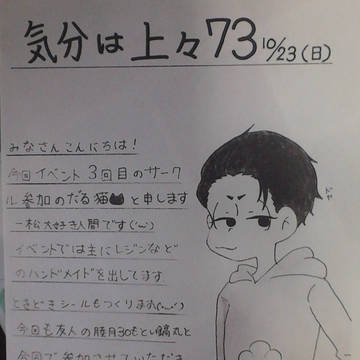 気分は上々73 10/23(日)
みなさんこんにちは!
今回イベント3回目のサーク
ル参加のだる猫と申します
一松大好き人間です('ω')
イベントでは主にレジンなど
のハンドメイドを出してます
ときどきシールもつくります('ω')
今回も友人の睦月30もとい鍋丸と
合同で参加させていただき
どや